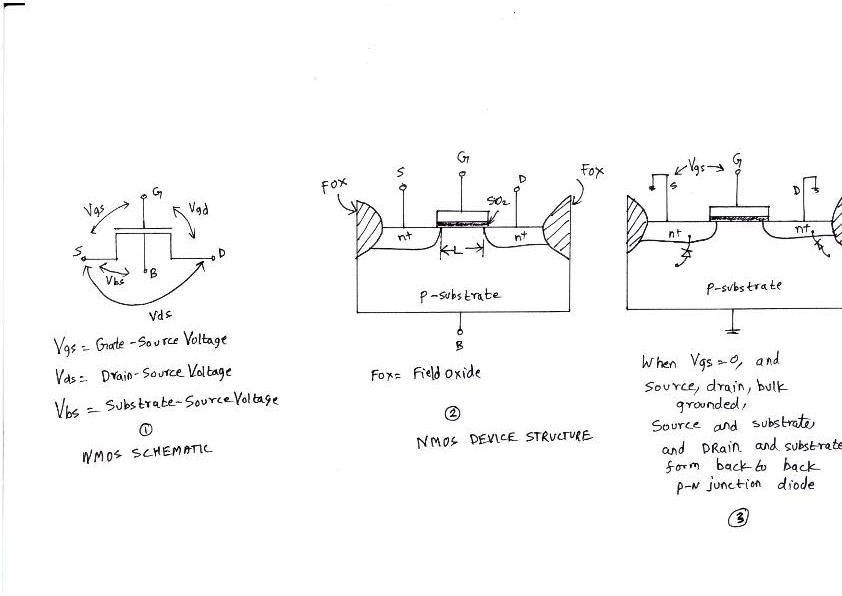 G
Vgs
Vgd
S
D
B
Vbs
Vds
Vgs = Gate-Source Voltage
Vds = Drain-Source Voltage
Vbs = Substrate-Source Voltage
①
NMOS SCHEMATIC
FOX
S
G
D
FOX
SiO2
n+
L
n+
P-substrate
B
FOX= Field Oxide
②
NMOS DEVICE STRUCTURE
Vgs
G
S
D
n+
n+
P-substrate
When Vgs=0, and
Source, drain, bulk
grounded,
Source and substrate,
and DRain and substrate
form back to back
P-N junction diode
③